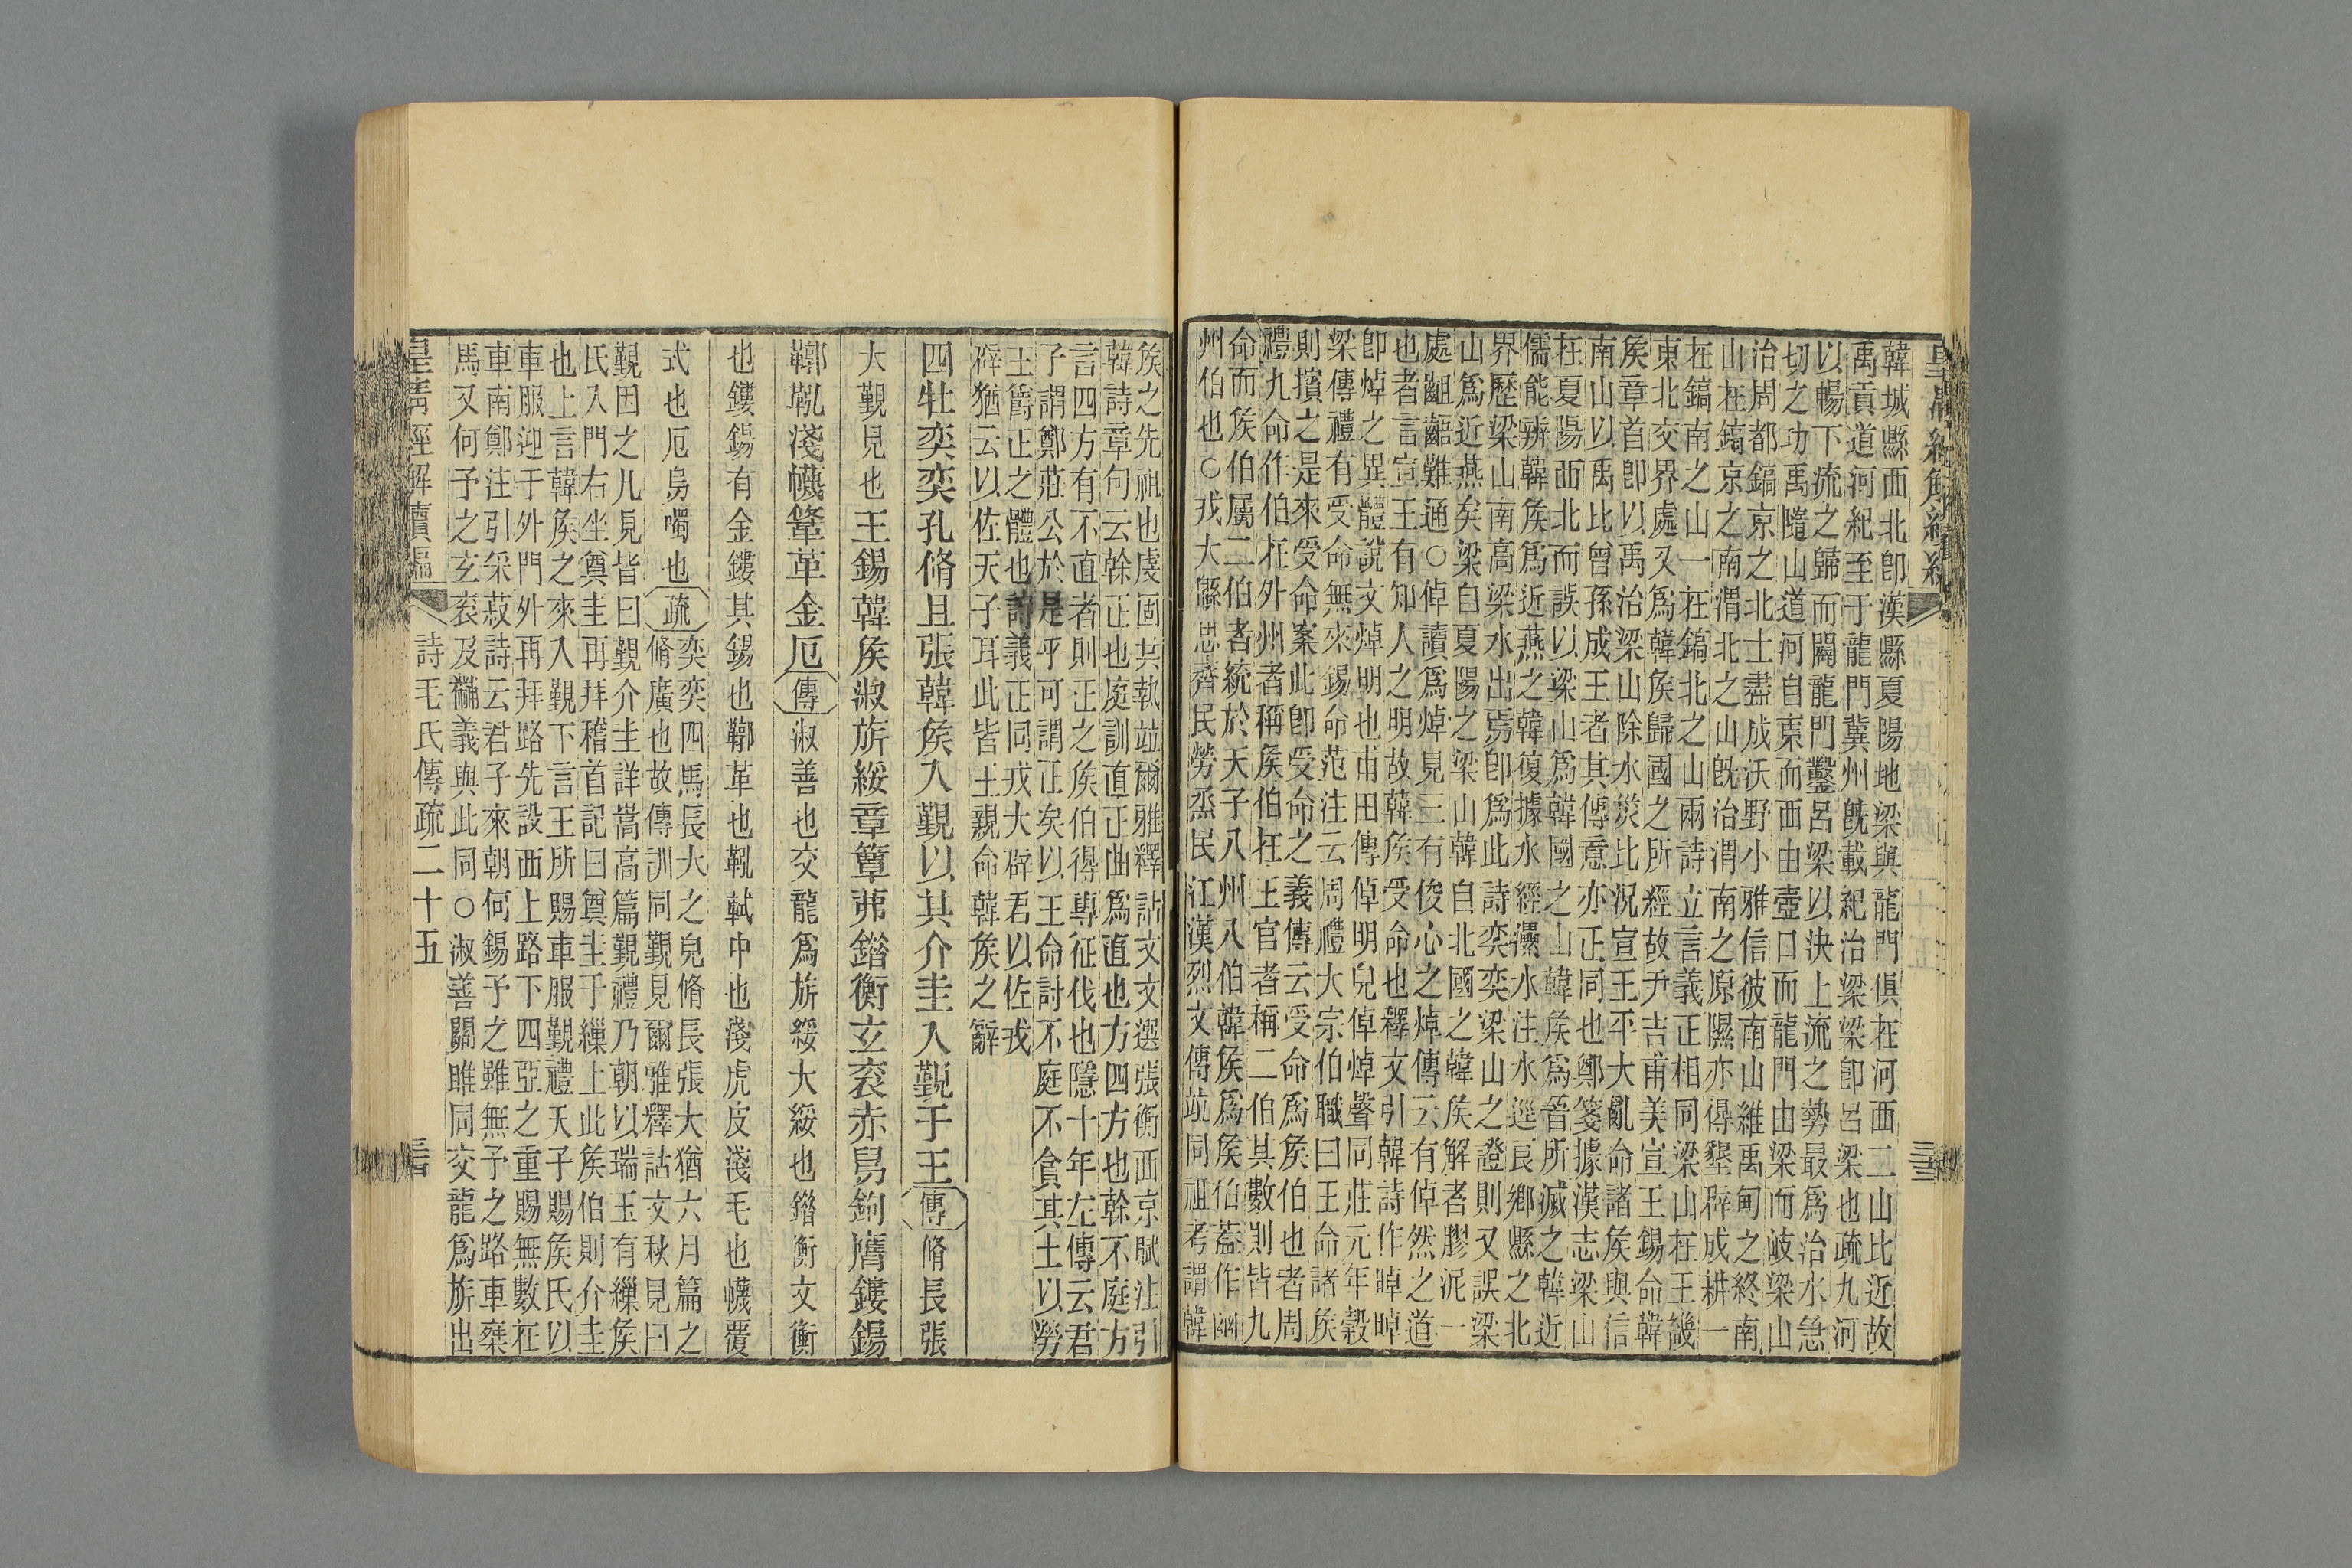 韓城縣西北卽漢縣夏陽地梁與龍門俱在河西二山比近故
禹貢道河紀至于龍門冀州旣載紀治梁梁卽呂梁也疏九河
以暢下流之歸而闢龍門鑿呂梁以決上流之勢最爲治水急
切之功禹隨山道河自東而西由壺口而龍門由梁而岐梁山
治周都鎬京之北士盡成沃野小雅信彼南山維禹甸之終南
山在鎬京之南渭北之山旣治渭南之原隰亦得墾辟成耕一
在鎬南之山一在鎬北之山兩詩立言義正相同梁山在王畿
東北交界處又爲韓矦歸國之所經故尹吉甫美宣王錫命韓
矦章首卽以禹治梁山除水災比況宣王平大亂命諸矦與信
南山以禹比曾孫成王者其傳意亦正同也鄭箋據漢志梁山
在夏陽西北而誤以梁山爲韓國之山韓矦爲晉所滅之韓近
儒能辨韓矦爲近燕之韓復據水經㶟水注水逕良鄉縣之北
界歷梁山南高梁水出焉卽爲此詩奕奕梁山之證則又誤梁
山爲近燕矣梁自夏陽之梁山韓自北國之韓矦解者膠泥一
處齟齬難通○倬讀爲焯見三有俊心之焯傳云有倬然之道
也者言宣王有知人之明故韓矦受命也釋文引韓詩作晫晫
卽焯之異體說文焯明也甫田傳倬明皃倬焯聲同莊元年穀
梁傳禮有受命無來錫命范注云周禮大宗伯職曰王命諸矦
則擯之是來受命案此卽受命之義傳云受命爲矦伯也者周
禮九命作伯在外州者稱矦伯在王官者稱二伯其數則皆九
命而矦伯屬二伯者統於天子八州八伯韓矦爲矦伯蓋作幽
州伯也○戎大緜思齊民勞烝民江漢烈文傳竝同祖考謂韓
矦之先祖也虔固共執竝爾雅釋詁文文選張衡西京賦注引
韓詩章句云榦正也庭訓直正曲爲直也方四方也榦不庭方
言四方有不直者則正之矦伯得專征伐也隱十年左傳云君
子謂鄭莊公於是乎可謂正矣以王命討不庭不貪其土以勞
王爵正之體也詩義正同戎大辟君以佐戎
辟猶云以佐天子耳此皆王親命韓矦之辭
四牡奕奕孔脩且張韓矦入覲以其介圭入覲于王傳脩長張
大覲見也王錫韓矦淑旂綏章簟茀錯衡玄袞赤舄鉤膺鏤錫
鞹鞃淺幭鞗革金厄傳淑善也交龍爲旂綏大綏也錯衡文衡
也鏤錫有金鏤其錫也鞹革也鞃軾中也淺虎皮淺毛也幭覆
式也厄烏噣也疏奕奕四馬長大之皃脩長張大猶六月篇之
脩廣也故傳訓同覲見爾雅釋詁文秋見曰
覲因之凡見皆曰覲介圭詳嵩高篇覲禮乃朝以瑞玉有繅矦
氏入門右坐奠圭再拜稽首記曰奠圭于繅上此矦伯則介圭
也上言韓矦之來入覲下言王所賜車服覲禮天子賜矦氏以
車服迎于外門外再拜路先設西上路下四亞之重賜無數在
車南鄭注引采菽詩云君子來朝何錫予之雖無予之路車乘
馬又何予之玄袞及黼義與此同○淑善關雎同交龍爲旂出
皇清經解續編
詩毛氏傳疏二十五